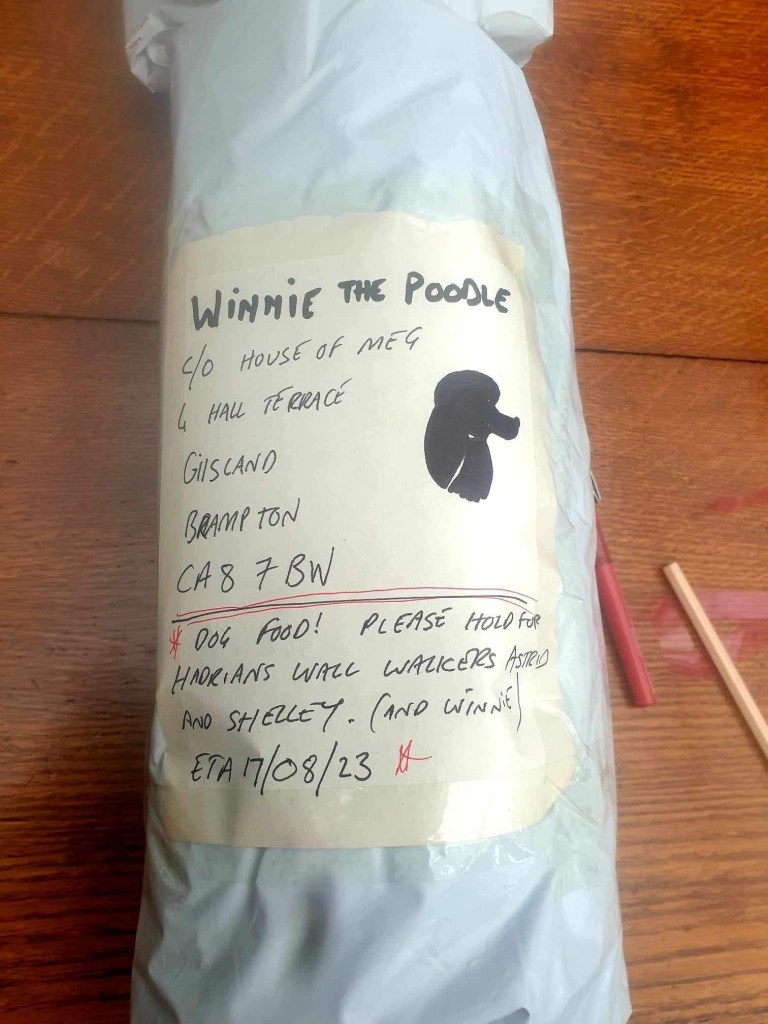 WINNIE THE POODLE
C/O HOUSE OF MEG
4 HALL TERRACE
GILSLAND
BRAMPTON
CA8 7BW
* DOG FOOD! PLEASE HOLD FOR
HADRIANS WALL WALKERS ASTRID
AND SHELLEY. (AND WINNIE)
ETA 17/08/23 *